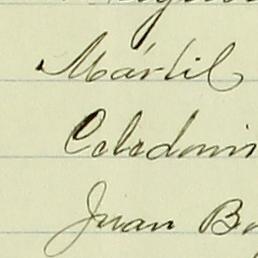 Mártil
Celedonin
Juan Bo